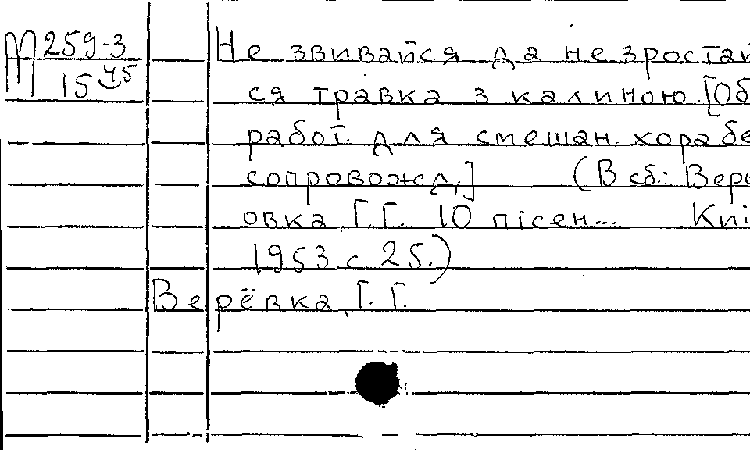 М 259-3
15 45
Не звивайся да не зростай
ся травка з калиною.[Об
работ. для смешан. хора бе
сопровожд.] (В сб.: Верь
овка, Г.Г. 10 пісен... Киї
1953 с 25.)
Верёвка, Г. Г.